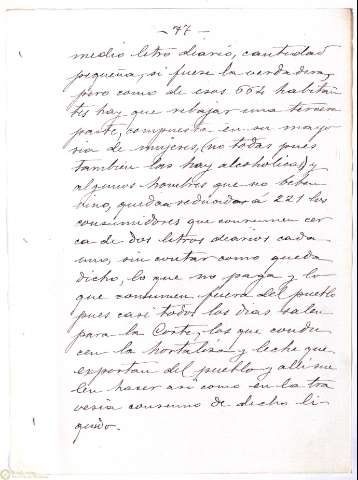 - 77 -
medio litro diario, cantidad
pequeña, si fuese la verdadera,
pero como de esos 664 habitan
tes hay que rebajar una tercera
parte, compuesta en su mayo-
ria de mujeres, (no todas pues
tambien las hay alcoholicas) y
algunos hombres que no beben
vino, quedan reducidos a 221 los
consumidores que consumen cer
ca de dos litros diarios cada
uno, sin contar como queda
dicho, lo que no paga y lo
que consumen fuera del pueblo
pues casi todos los dias salen
para la Corte, los que condu
cen la hortaliza y leche que
exportan del pueblo y alli sue
len hacer asi como en la tra
vesia consumo de dicho li-
quido.